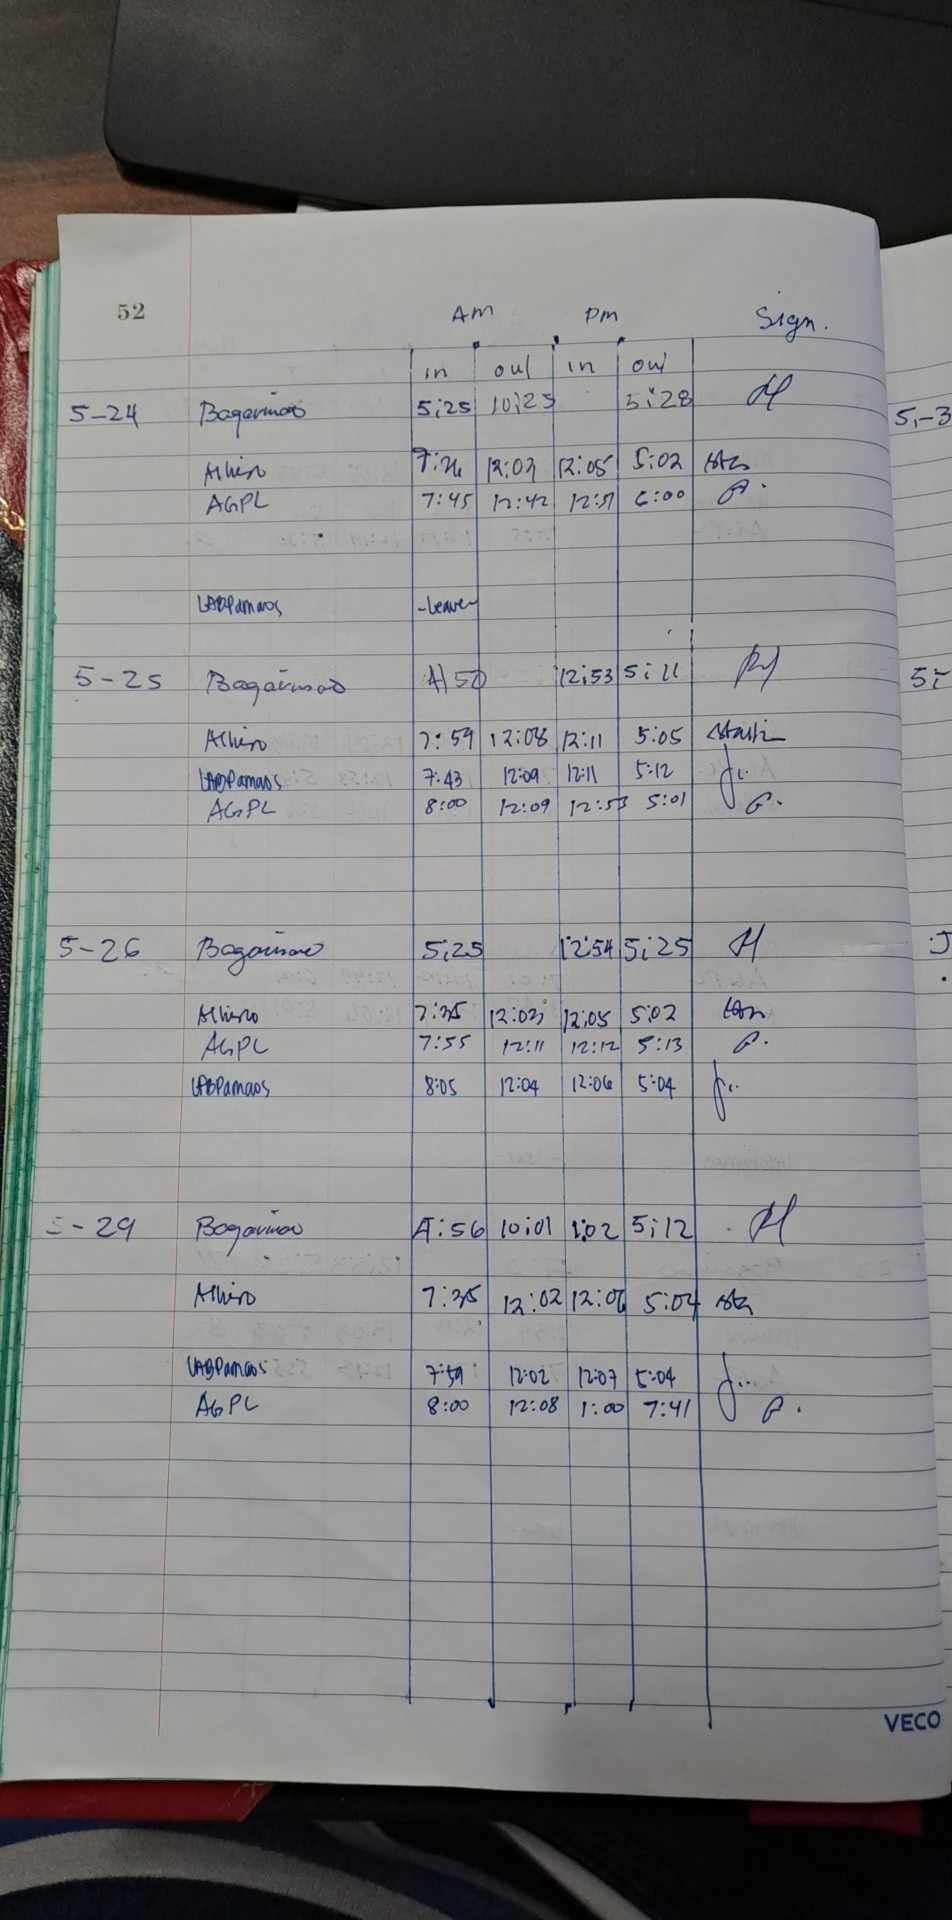 52 Am Pm Sign.
in out in out
5-24 Bagarinao 5:25 10:25 5:28
7:26 12:03 12:05 5:02
AGPL 7:45 12:42 12:51 6:00
LABPamaos -Leave-
5-25 Bagarinao 12:53 5:11
7:59 12:08 12:11 5:05
LABPamaos 7:43 12:09 12:11 5:12
AGPL 8:00 12:09 12:53 5:01
5-26 Bagarinao 5:25 12:54 5:25
7:35 12:03 12:05 5:02
AGPL 7:55 12:11 12:12 5:13
LABPamaos 8:05 12:04 12:06 5:04
5-29 Bagarinao 10:01 1:02 5:12
7:35 12:02 12:06 5:04
LABPamaos 7:59 12:02 12:07 5:04
AGPL 8:00 12:08 1:00 7:41
VECO